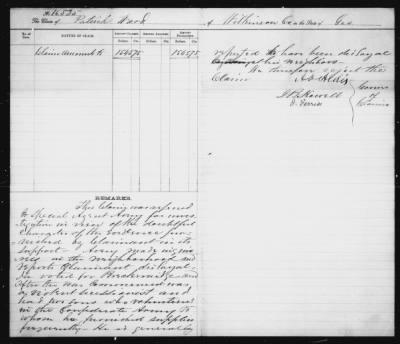 No. 16570
The Claim of Patrick Ward of Wilkinson County Ga
No. of Claim. NATURE OF CLAIM. AMOUNT CLAIMED. AMOUNT ALLOWED. AMOUNT DISALLOWED.
Dollars. Cts. Dollars. Cts. Dollars. Cts.
Claim amounts to 1565.75 1565.75
REMARKS.
This Claim was referred
to Special Agent Avery for inves
tigation in view of the doubtful
Character of the evidence fur
nished by Claimant in its
support. Avery made inqui
ries in the neighborhood and
reports Claimant disloyal.
He voted for Breckinridge and
After the War Commenced was
a violent Secessionist and
had two sons who volunteered
in the Confederate Army to
whom he furnished supplies
frequently. He is generally
reputed to have been disloyal
by his neighbors.
We therefore reject the
Claim
A. O. Aldis
J B Howell
O. Ferriss
Comrs
of
Claims